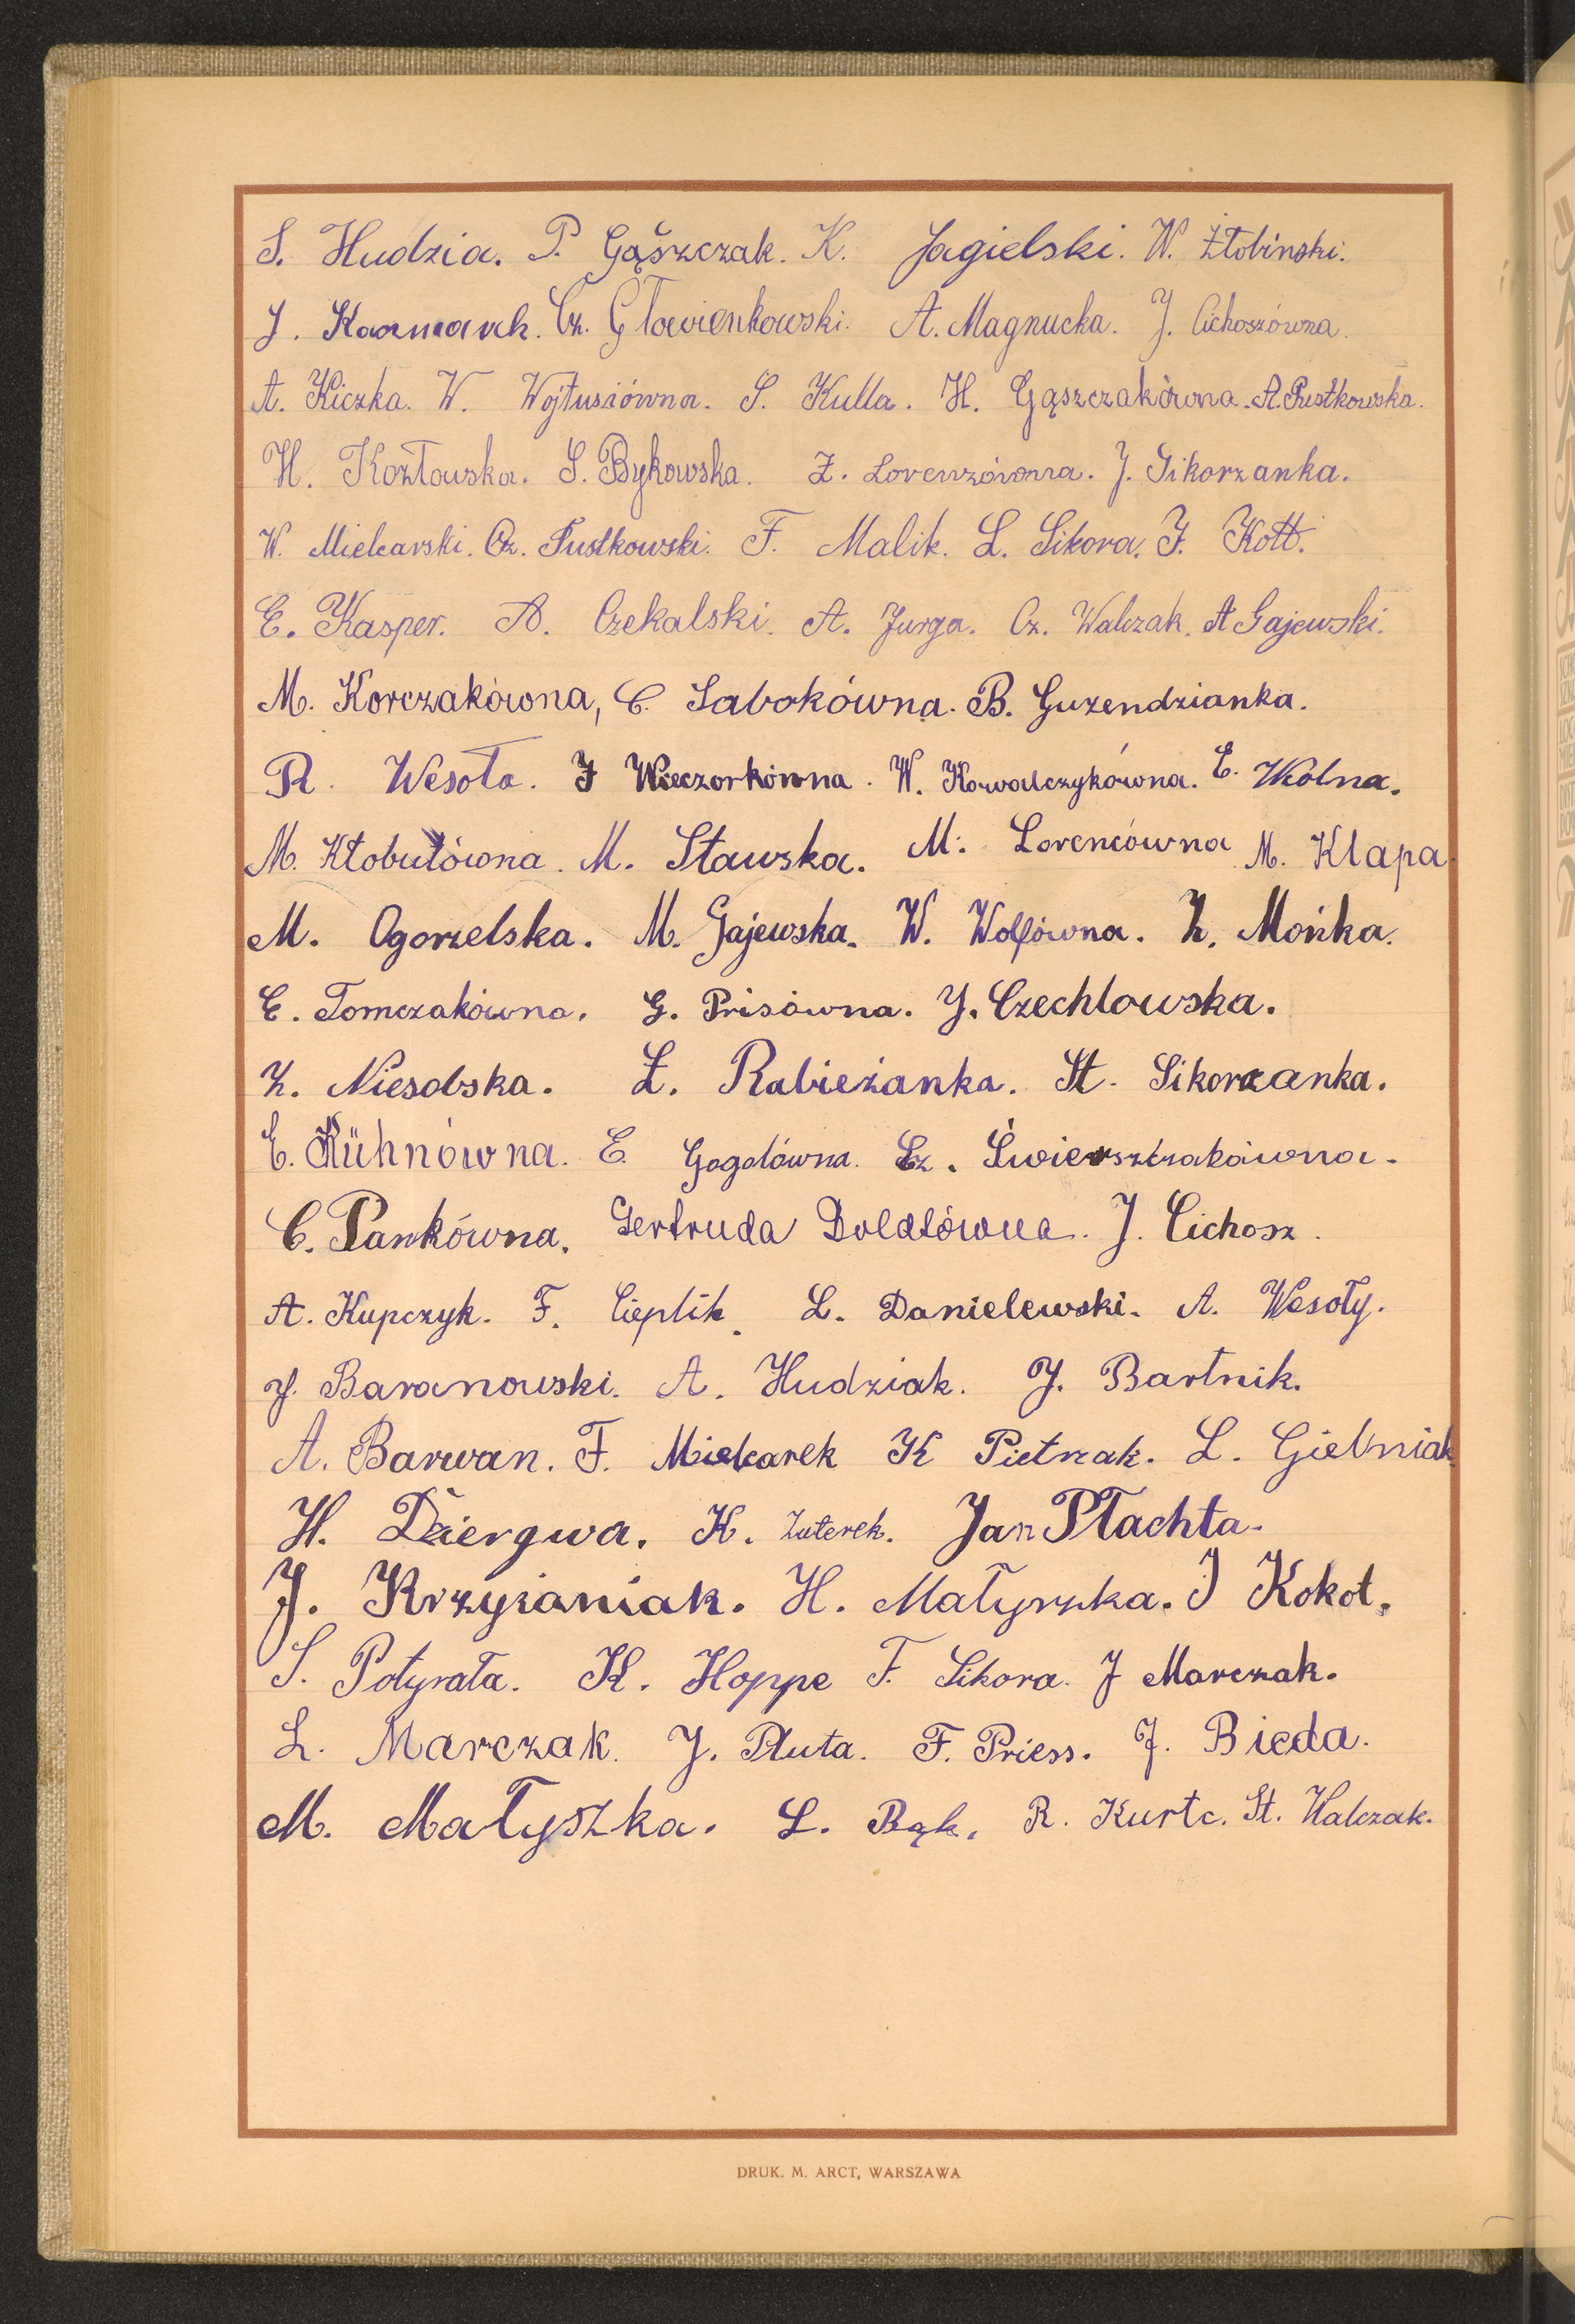 S. Hudzia. P. Gąszczak. K. Jagielski. W. Żłobinski.
J. Cz. Gławienkowski. A. Magnucka. J. Cichoszówna.
A. Kiczka. W. Wojtusiówna. S. Kulla. H. Gąszczakówna. A. Pustkowska.
H. Kozłowska. S. Bykowska. Z. Lorenzówna. J. Sikorzanka.
W. Mielcarski. Cz. Pustkowski. F. Malik. L. Sikora. J. Kott.
E. Kasper. A. Czekalski. A. Jurga. Cz. Walczak. A Gajewski.
M. Korczakówna, C. Sabokówna. B. Guzendzianka.
R. Wesoła. J Wieczorkówna. W. Kowalczykówna. E. Wolna.
M. Kłobułówna. M. Stawska. M. Lorencówna M. Klapa.
M. Ogorzelska. M. Gajewska. W. Wolfówna. Z. Mońka.
E. Tomczakówna. G. Prisówna. J. Czechlowska.
Z. Niesobska. Z. Rabieżanka. St. Sikorzanka.
E. Kühnówna. E. Gogołówna. Cz. Świerszczakówna.
C. Pankówna. Gertruda Doldłówna. J. Cichosz.
A. Kupczyk. F. Cieplik. L. Danielewski. A. Wesoły.
J. Baranowski. A. Hudziak. J. Bartnik.
A. Barwan. F. Mielcarek K Pietrzak. L. Gielniak
H. Dziergwa. K. Zuterek. Jan Płachta.
J. Krzyżaniak. H. Małyszka. J Kokot.
S. Potyrała. K. Hoppe F. Sikora. J Marczak.
L. Marczak. J. Pluta. F. Priess. J. Bieda.
M. Małyszka. L. Bąk. R. Kurtc. St. Walczak.
DRUK. M. ARCT, WARSZAWA